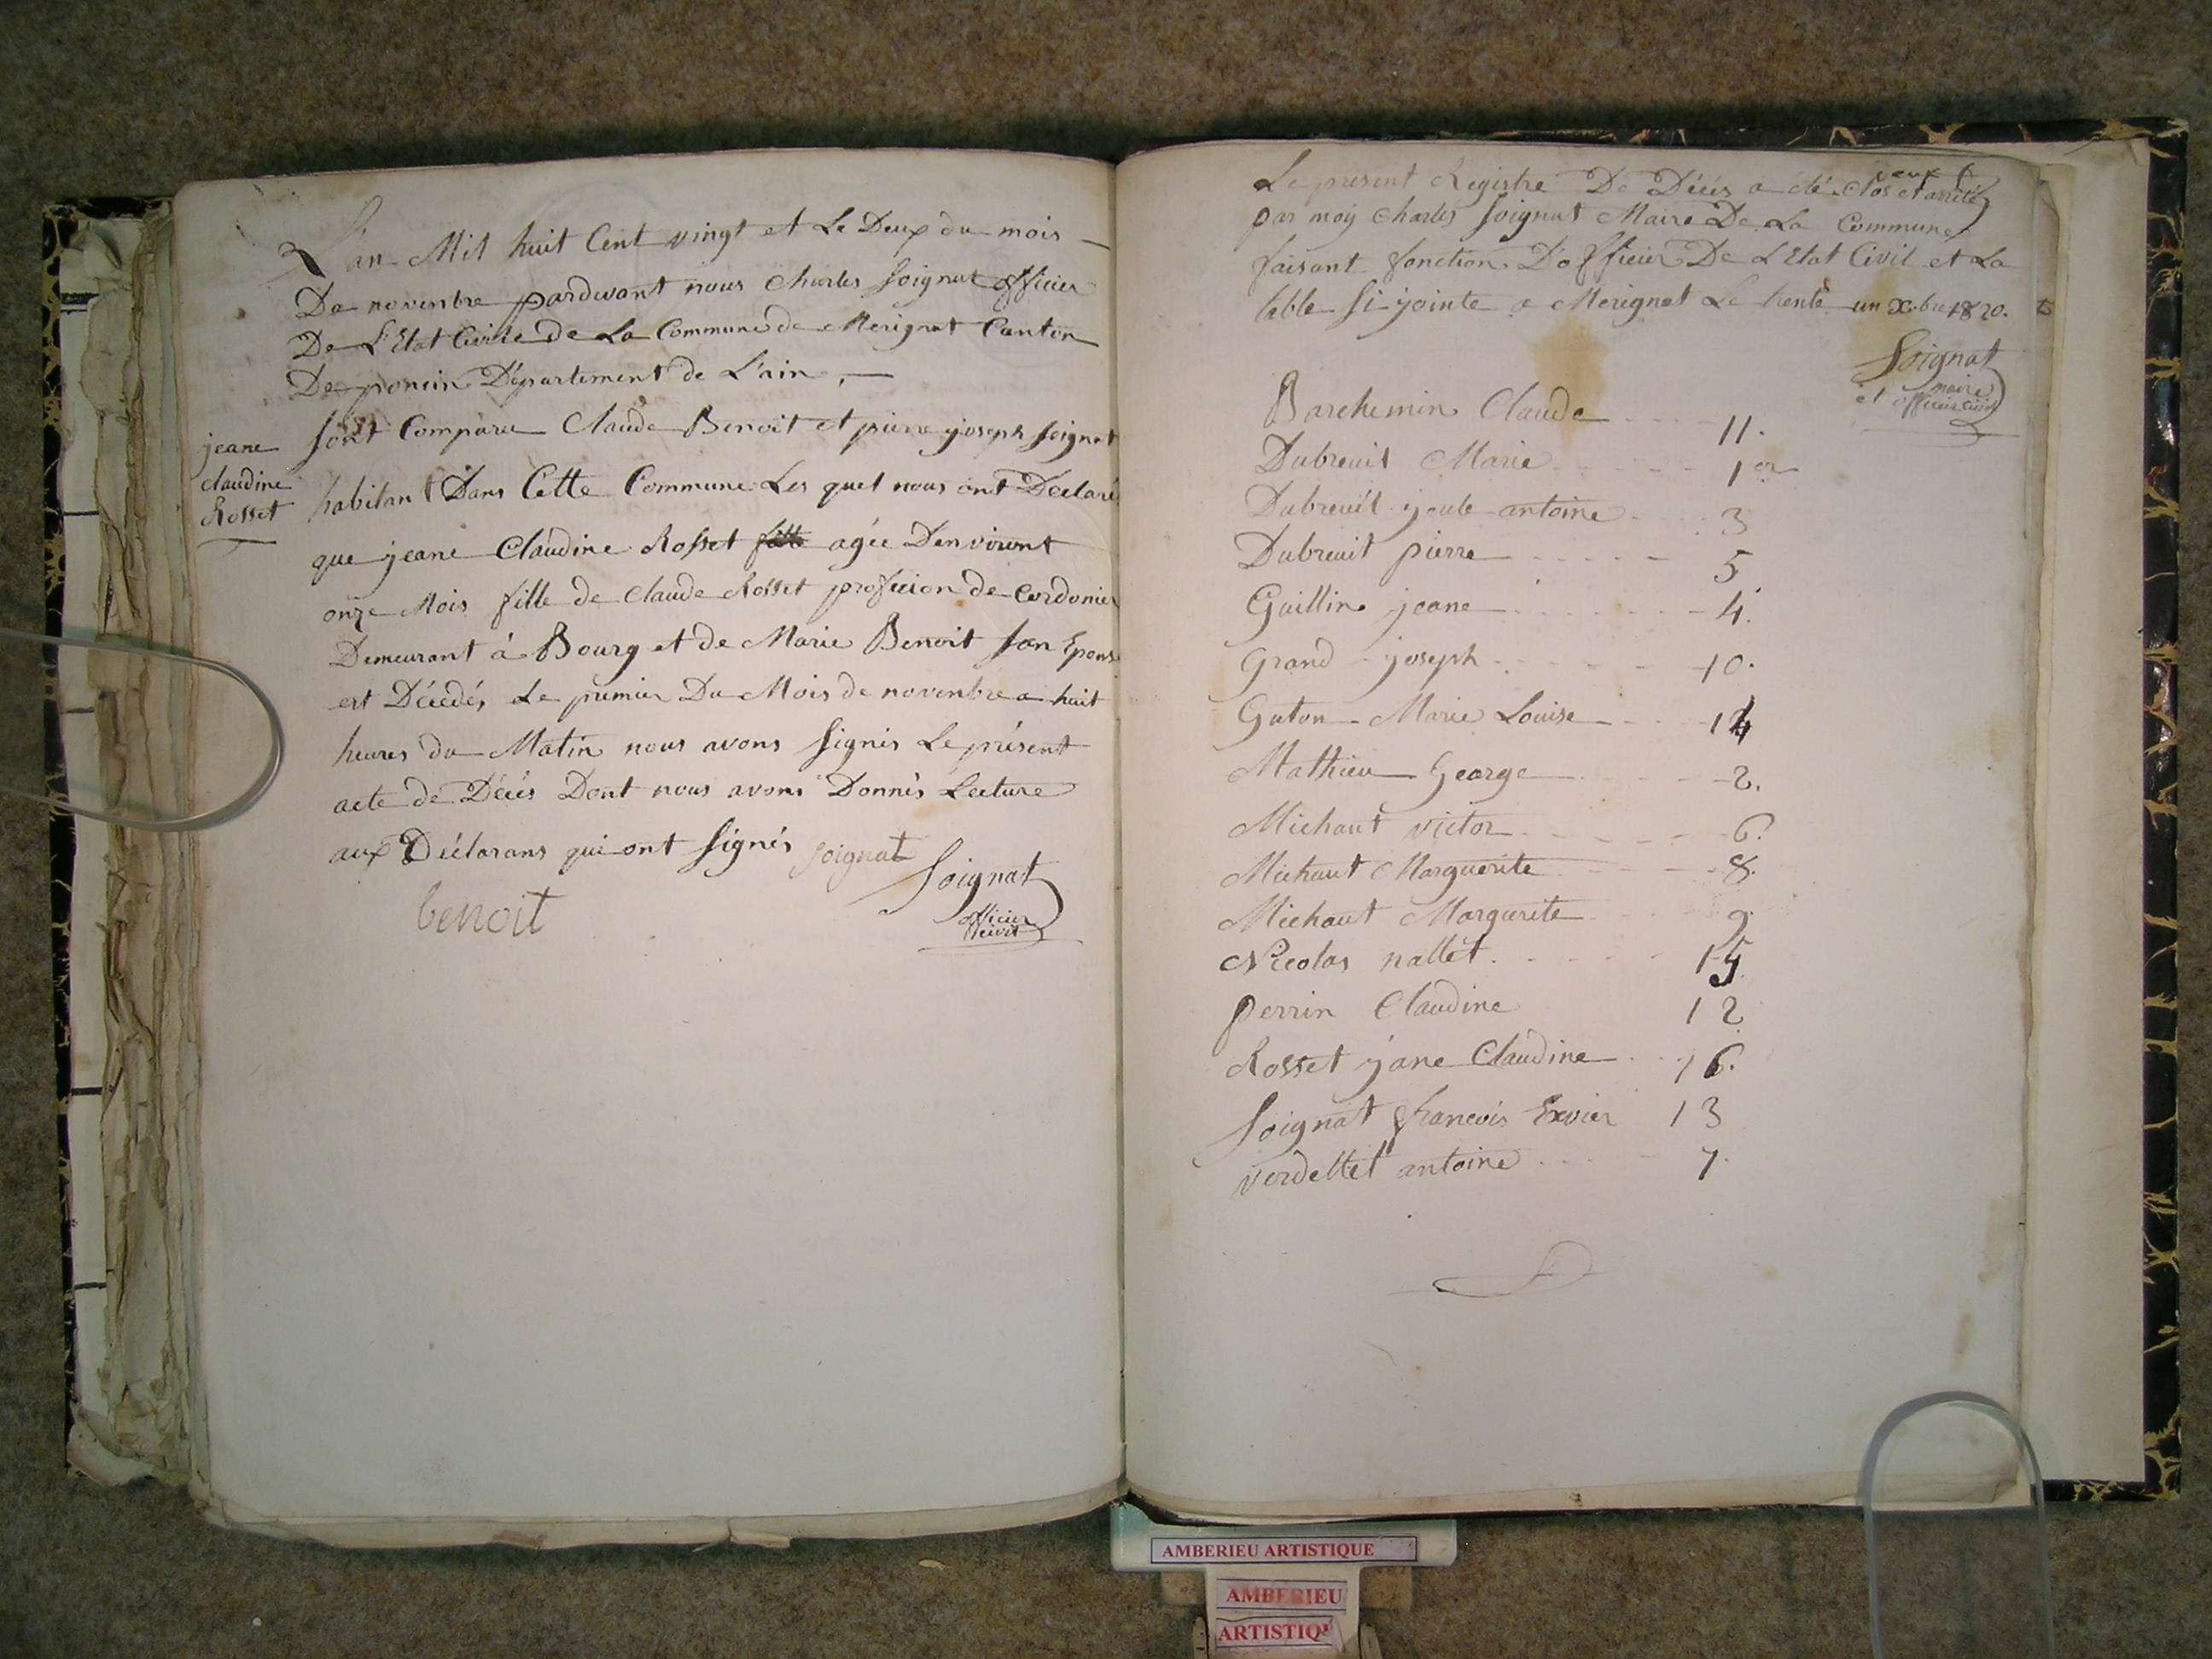 L'an Mil huit Cent vingt et Le Deux du mois
De novenbre pardevant nous Charles Soignat officier
De L'Etat Civile de La Commune de Merignat Canton
De poncin Département de L'ain,
jeane
claudine
Rosset
Sont Comparu Claude Benoit et pierre joseph Soignat
habitant Dans Cette Commune Les quel nous ont Déclaré
que jeane Claudine Rosset fille agée Denviront
onze Mois fille de Claude Rosset profición de Cordonier
Demeurant à Bourg et de Marie Benoit Son Epouse
est Décedés Le premier Du Mois de novenbre a huit
heures du Matin nous avons Signés Le présent
acte de Décés Dont nous avons Donnés Lecture
aux Déclarans qui ont Signés Soignat
Soignat
officier
civil
benoit
Le present Registre De Décés a été Clos et arrêté
par moy Charles Soignat Maire De La Commune
faisant fonction D'officier De L'Etat Civil et La
table Si jointe a Merignat Le trente un Xbre 1820.
Soignat
maire
et officier civil
Barchemin Claude 11.
Dubreuil Marie 1er
Dubreuil antoine 3
Dubreuil pierre 5
Guillin jeane 4.
Grand joseph 10.
Guton Marie Louise 14
Mathieu George 2.
Michaut victor 6.
Michaut Marguerite 8.
Michaut Margurite 9.
Nicolas nallet 15
perrin Claudine 12
Rosset jane Claudine 16.
Soignat francois Exvier 13
verdellet antoine 7.
AMBERIEU ARTISTIQUE
AMBERIEU
ARTISTIQU